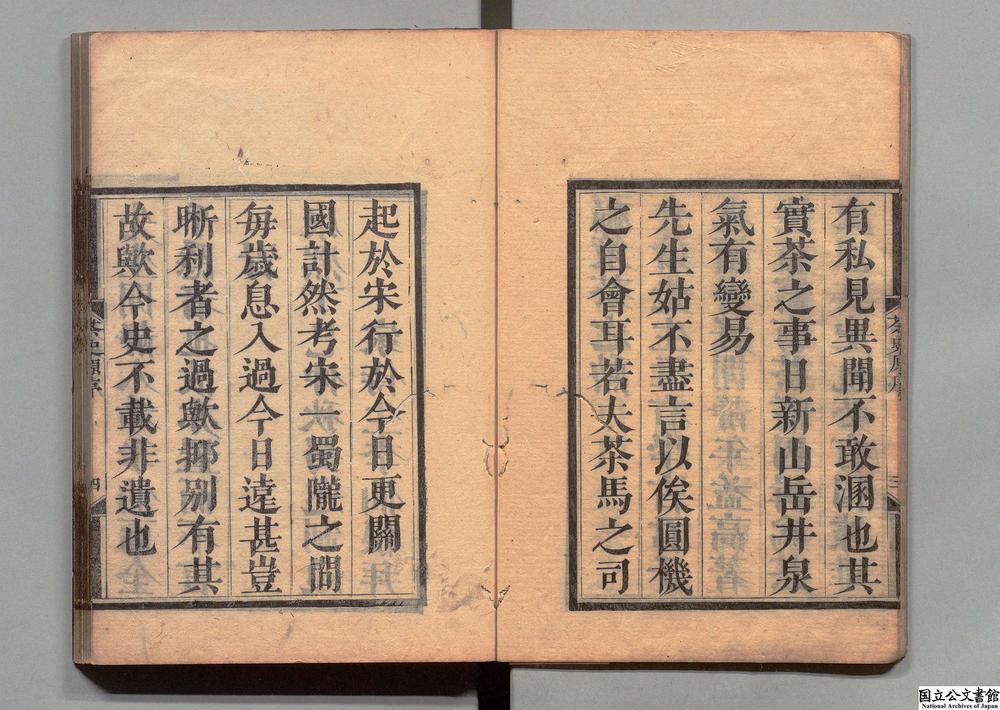 有私見異聞不敢溷也其
實茶之事日新山岳井泉
氣有變易
先生姑不盡言以俟圓機
之自會耳若夫茶馬之司
起於宋行於今日更關
國計然考宋一蜀隴之間
每歲息入過今日遠甚豈
晰利者之過歟抑別有其
故歟今史不載非遺也
茶史原序
三
四
国立公文書館
National Archives of Japan